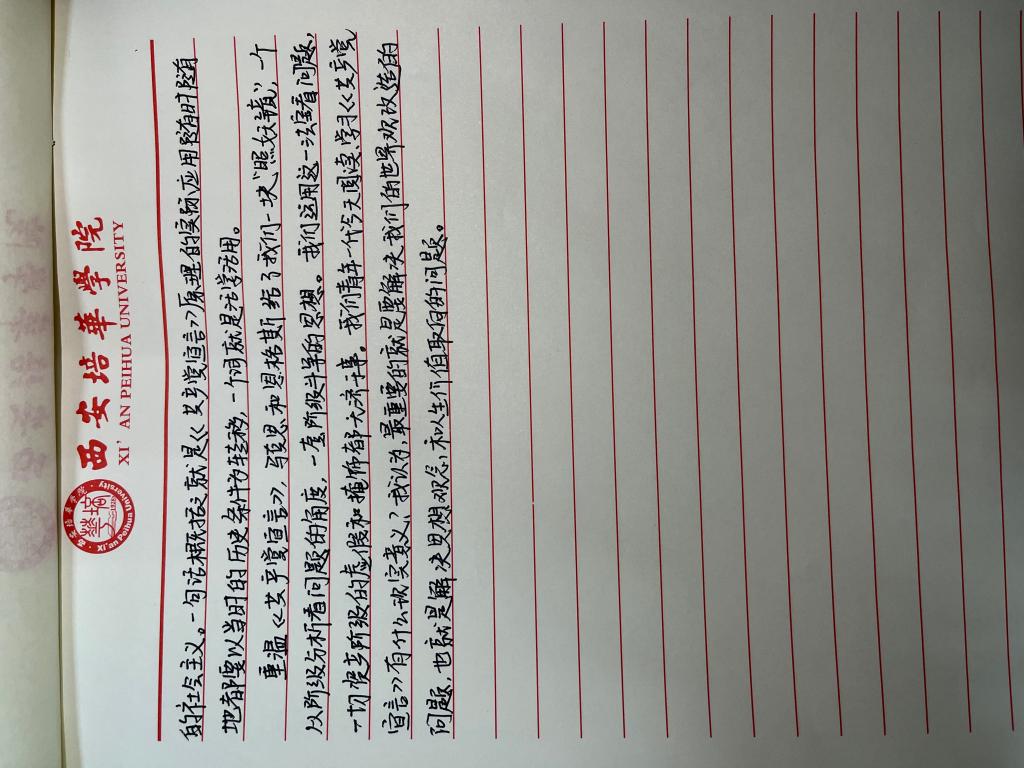 西安培華學院
XI'AN PEIHUA UNIVERSITY
西安培华学院
Xi'an Peihua University
的社会主义。一句话概括之就是《共产党宣言》原理的实际应用随时随
地都要以当时的历史条件为转移,一个词就是活学活用。
重温《共产党宣言》,马克思和恩格斯给了我们一块"照妖镜",一个
以阶级分析看问题的角度,一套阶级斗争的思想。我们运用这一法宝看问题,
一切使考阶级的虚假和掩饰都大济于事。我们青年一代今天阅读、学习《共产党
宣言》有什么现实意义?我认为,最重要的就是要解决我们的世界观改造的
问题,也就是解决思想观念,和人生价值取向的问题。